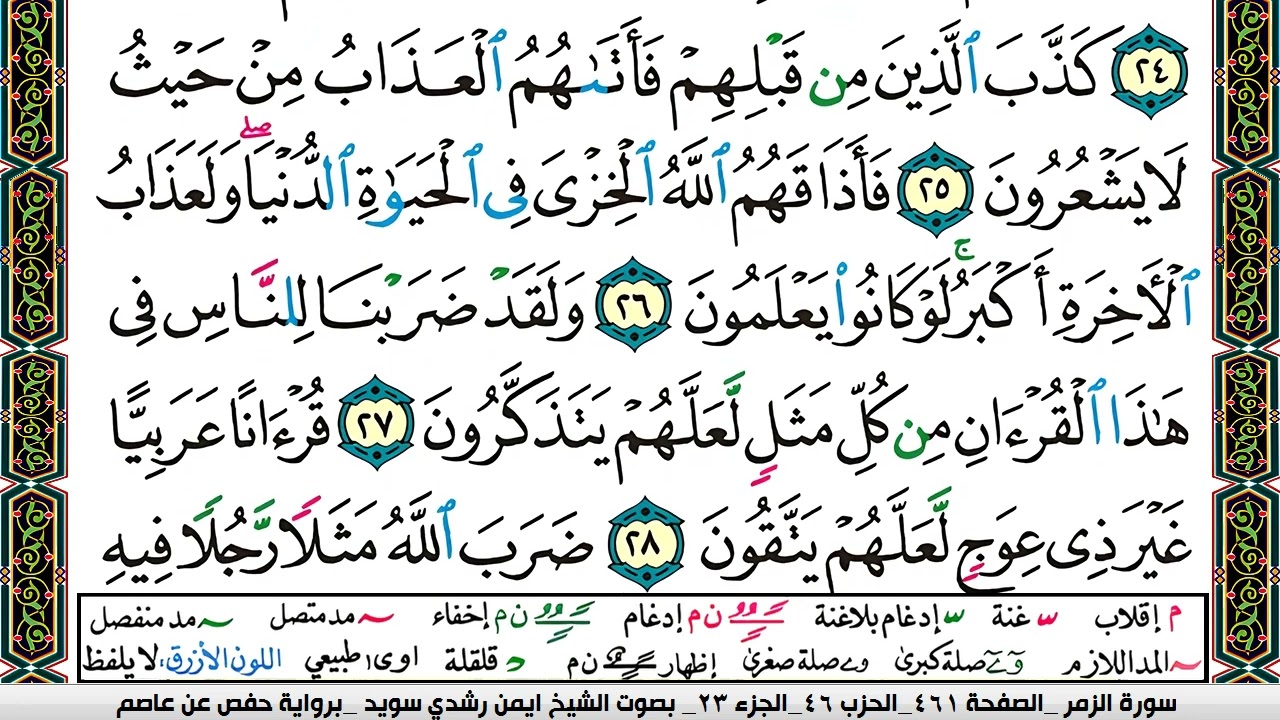 ٢٤ كَذَّبَ ٱلَّذِينَ مِن قَبْلِهِمْ فَأَتَىٰهُمُ ٱلْعَذَابُ مِنْ حَيْثُ
لَا يَشْعُرُونَ ٢٥ فَأَذَاقَهُمُ ٱللَّهُ ٱلْخِزْىَ فِى ٱلْحَيَوٰةِ ٱلدُّنْيَاۖ وَلَعَذَابُ
ٱلْأَخِرَةِ أَكْبَرُۚ لَوْ كَانُوا۟ يَعْلَمُونَ ٢٦ وَلَقَدْ ضَرَبْنَا لِلنَّاسِ فِى
هَٰذَا ٱلْقُرْءَانِ مِن كُلِّ مَثَلٍ لَّعَلَّهُمْ يَتَذَكَّرُونَ ٢٧ قُرْءَانًا عَرَبِيًّا
غَيْرَ ذِى عِوَجٍ لَّعَلَّهُمْ يَتَّقُونَ ٢٨ ضَرَبَ ٱللَّهُ مَثَلًا رَّجُلًا فِيهِ
م إقلاب غنة إدغام بلاغنة ن م إدغام ن م إخفاء مد متصل مد منفصل
المد اللازم صلة كبرى صلة صغرى إظهار ن م قلقلة اوى طبيعي اللون الأزرق، لا يلفظ
سورة الزمر _الصفحة ٤٦١_الحزب ٤٦_الجزء ٢٣_ بصوت الشيخ ايمن رشدي سويد _برواية حفص عن عاصم